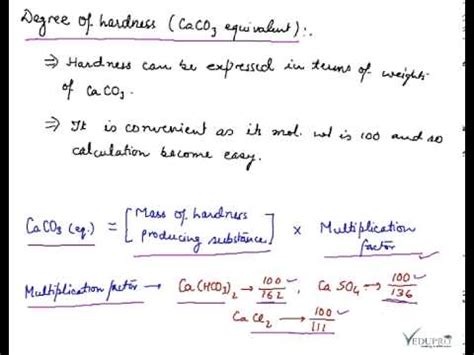 Degree of hardness (CaCO₃ equivalent):.
⇒ Hardness can be expressed in terms of weight
of CaCO₃.
⇒ It is convenient as its mol. wt is 100 and so
calculation become easy.
CaCO₃ (eq.) = [Mass of hardness producing substance] × Multiplication factor
Multiplication factor → Ca(HCO₃)₂ → 100/162, CaSO₄ → 100/136
CaCl₂ → 100/111
EDUPRO